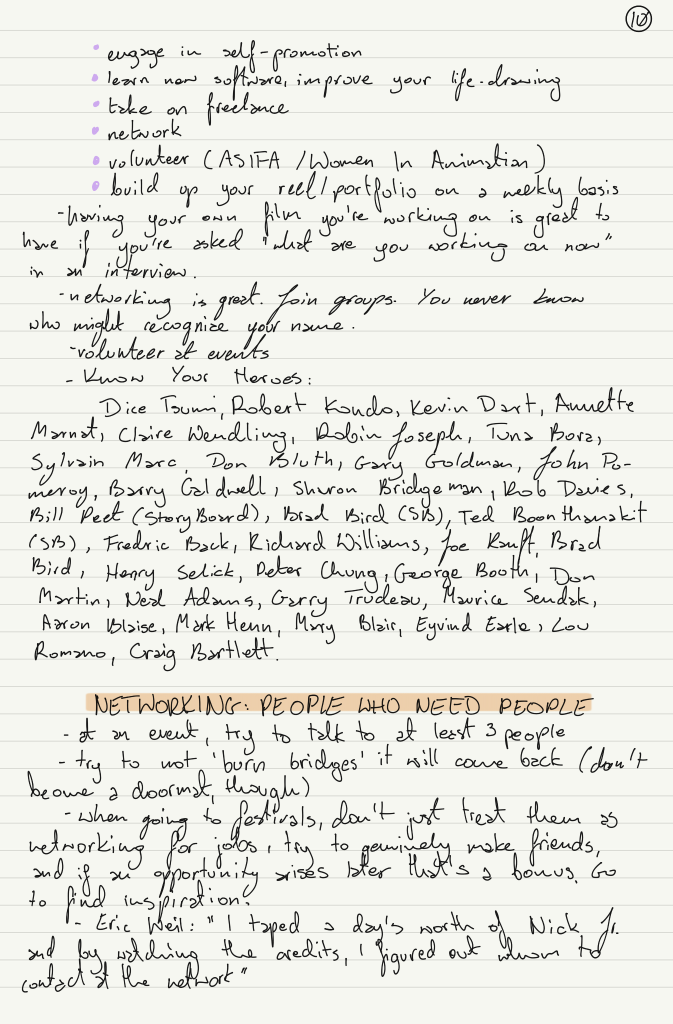 10
• engage in self-promotion
• learn new software, improve your life-drawing
• take on freelance
• network
• volunteer (ASIFA / Women In Animation)
• build up your reel/portfolio on a weekly basis
-having your own film you're working on is great to
have if you're asked "what are you working on now"
in an interview.
-networking is great. Join groups. You never know
who might recognize your name.
-volunteer at events
- Know Your Heroes:
Dice Tsumi, Robert Kondo, Kevin Dart, Annette
Marnat, Claire Wendling, Robin Joseph, Tuna Bora,
Sylvain Marc, Don Bluth, Gary Goldman, John Po-
meroy, Barry Caldwell, Sharon Bridgeman, Rob Davies,
Bill Peet (StoryBoard), Brad Bird (SB), Ted Boonthanakit
(SB), Fredric Back, Richard Williams, Joe Ranft, Brad
Bird, Henry Selick, Peter Chung, George Booth, Don
Martin, Neal Adams, Garry Trudeau, Maurice Sendak,
Aaron Blaise, Mark Henn, Mary Blair, Eyvind Earle, Lou
Romano, Craig Bartlett.
NETWORKING: PEOPLE WHO NEED PEOPLE
- at an event, try to talk to at least 3 people
- try to not 'burn bridges' it will come back (don't
become a doormat, though)
- when going to festivals, don't just treat them as
networking for jobs, try to genuinely make friends,
and if an opportunity arises later that's a bonus. Go
to find inspiration.
- Eric Weil: "I taped a day's worth of Nick Jr.
and by watching the credits, I figured out whom to
contact at the network"